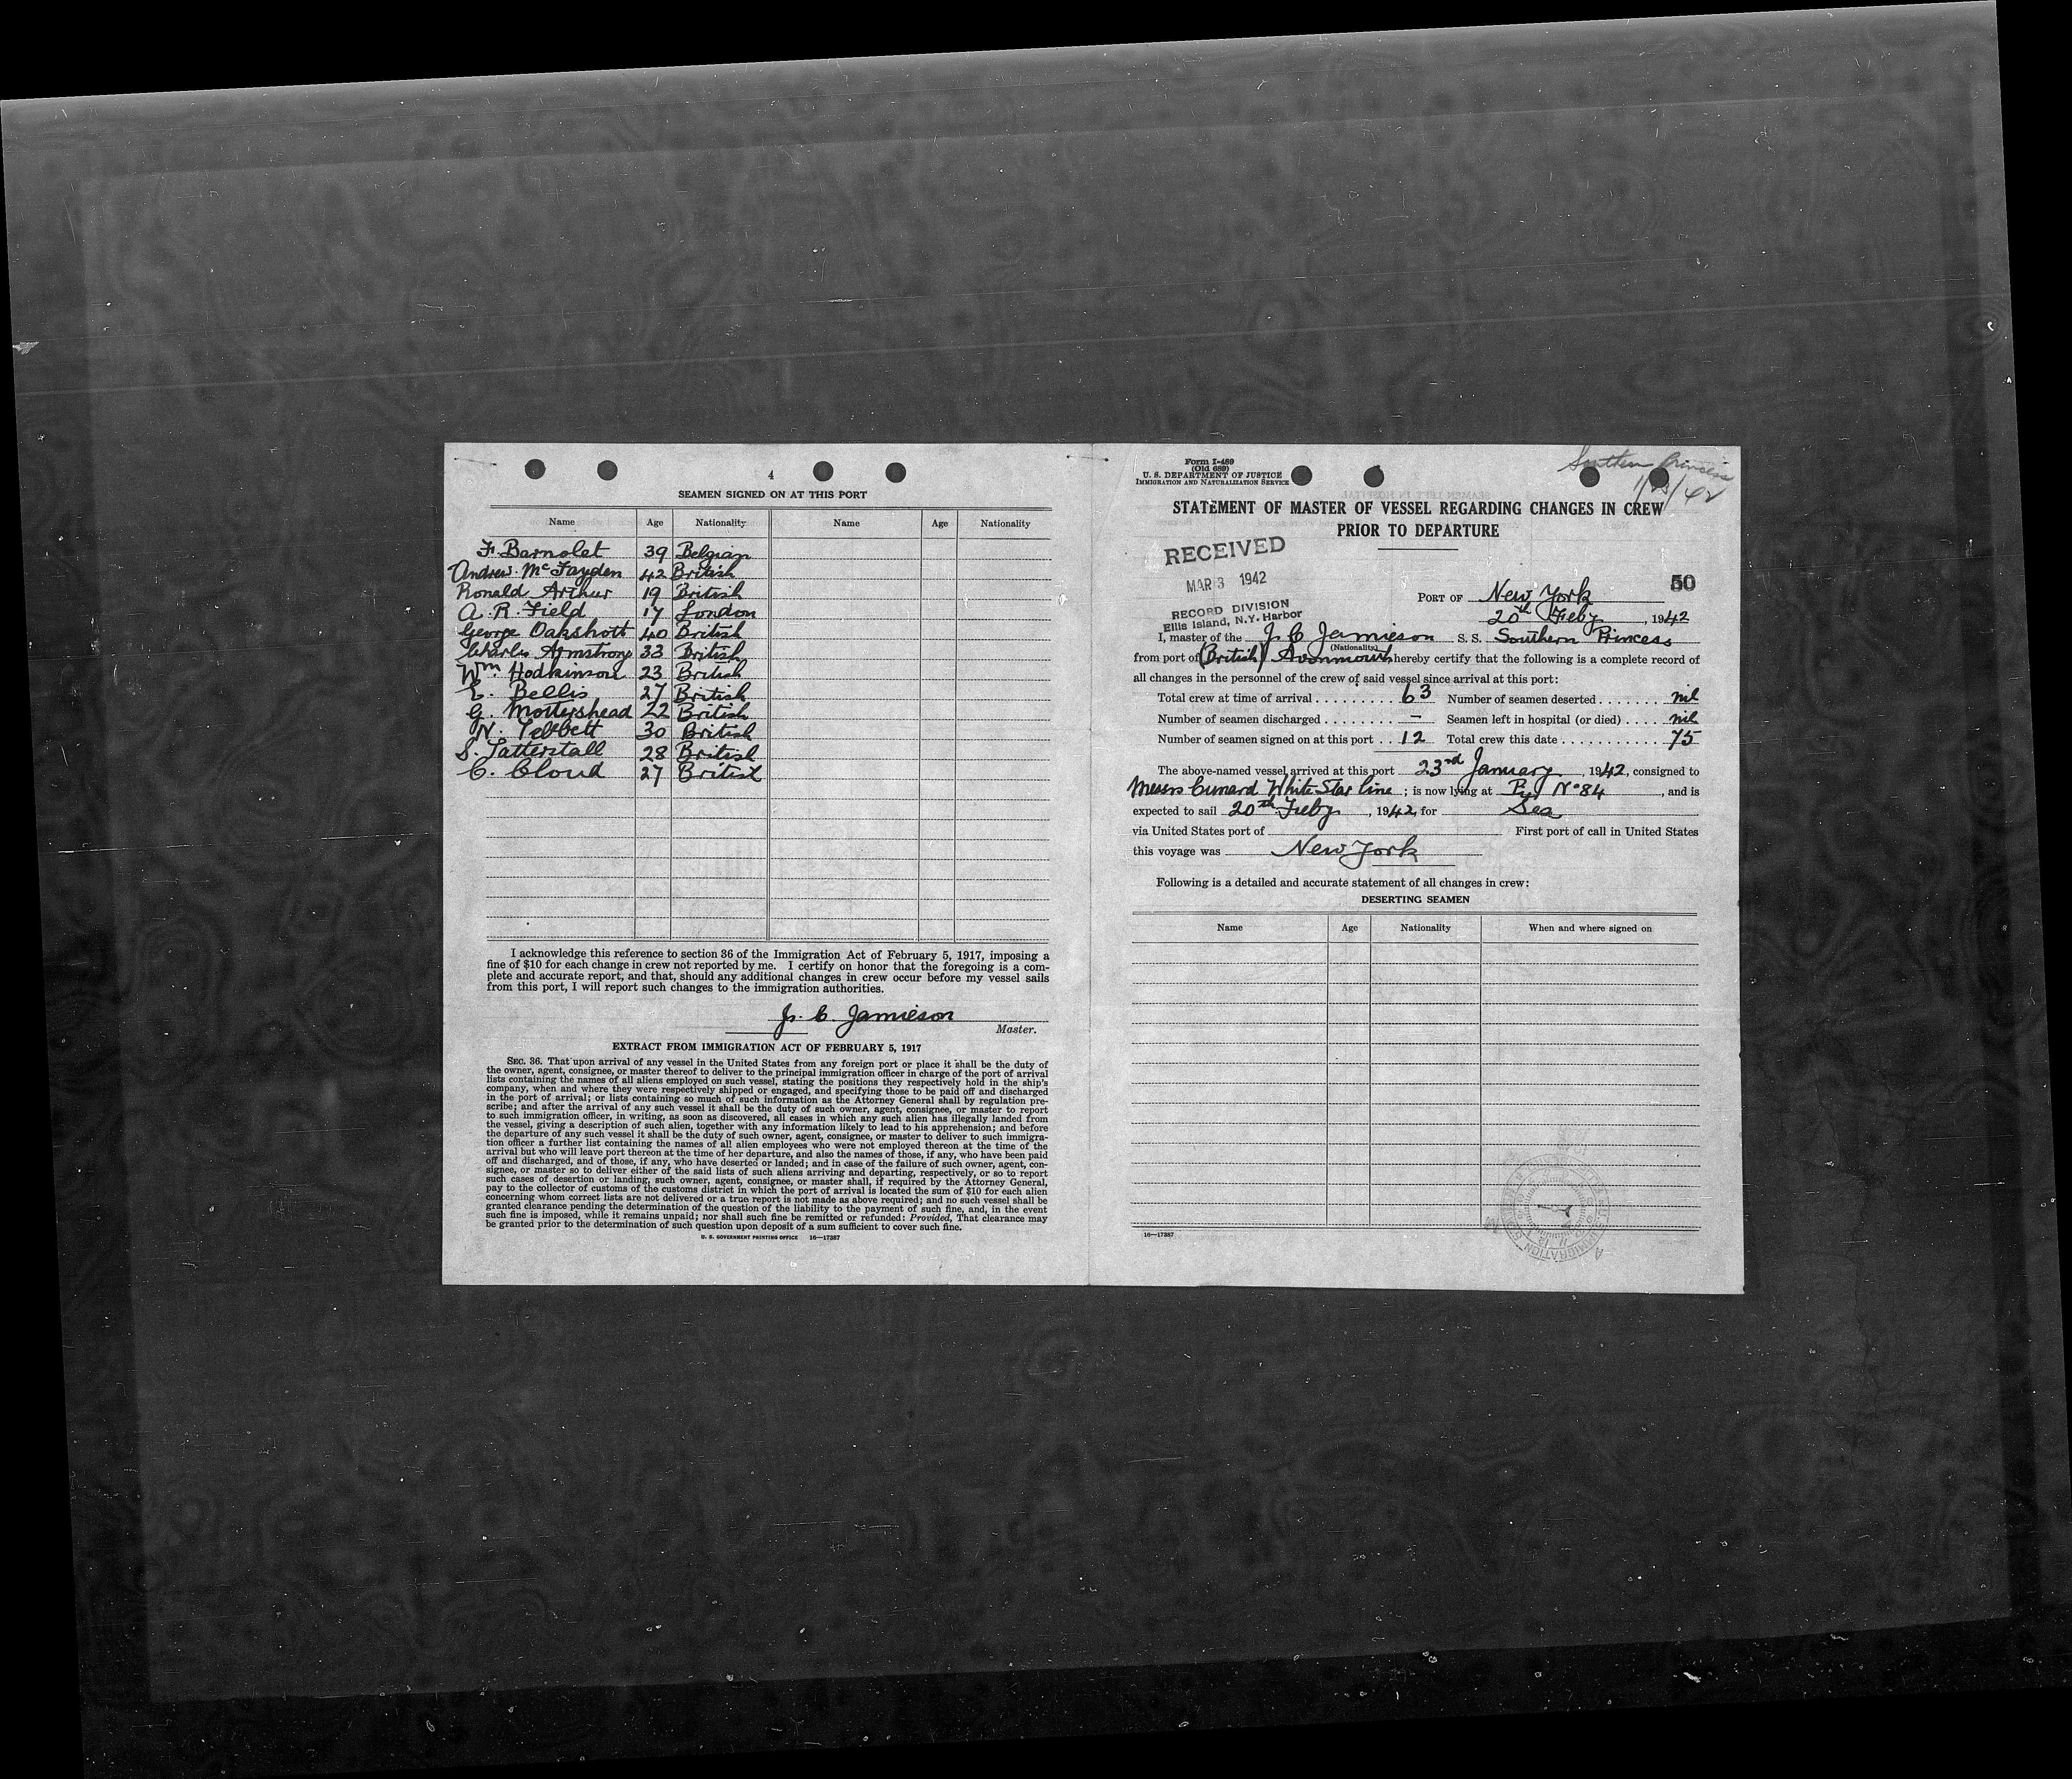 4
SEAMEN SIGNED ON AT THIS PORT
Name Age Nationality Name Age Nationality
F. Barnolet 39 Belgian
Andrew McFayden 42 British
Ronald Arthur 19 British
A. R. Field 17 London
George Oakshott 40 British
Charles Armstrong 33 British
Wm. Hodkinson 23 British
E. Bellis 27 British
G. Mottershead 22 British
N. Tebbett 30 British
S. Tatterstall 28 British
C. Cloud 27 British
I acknowledge this reference to section 36 of the Immigration Act of February 5, 1917, imposing a
fine of $10 for each change in crew not reported by me. I certify on honor that the foregoing is a com-
plete and accurate report, and that, should any additional changes in crew occur before my vessel sails
from this port, I will report such changes to the immigration authorities.
J. C. Jamieson
Master.
EXTRACT FROM IMMIGRATION ACT OF FEBRUARY 5, 1917
SEC. 36. That upon arrival of any vessel in the United States from any foreign port or place it shall be the duty of
the owner, agent, consignee, or master thereof to deliver to the principal immigration officer in charge of the port of arrival
lists containing the names of all aliens employed on such vessel, stating the positions they respectively hold in the ship's
company, when and where they were respectively shipped or engaged, and specifying those to be paid off and discharged
in the port of arrival; or lists containing so much of such information as the Attorney General shall by regulation pre-
scribe; and after the arrival of any such vessel it shall be the duty of such owner, agent, consignee, or master to report
to such immigration officer, in writing, as soon as discovered, all cases in which any such alien has illegally landed from
the vessel, giving a description of such alien, together with any information likely to lead to his apprehension; and before
the departure of any such vessel it shall be the duty of such owner, agent, consignee, or master to deliver to such immigra-
tion officer a further list containing the names of all alien employees who were not employed thereon at the time of the
arrival but who will leave port thereon at the time of her departure, and also the names of those, if any, who have been paid
off and discharged, and of those, if any, who have deserted or landed; and in case of the failure of such owner, agent, con-
signee, or master so to deliver either of the said lists of such aliens arriving and departing, respectively, or so to report
such cases of desertion or landing, such owner, agent, consignee, or master shall, if required by the Attorney General,
pay to the collector of customs of the customs district in which the port of arrival is located the sum of $10 for each alien
concerning whom correct lists are not delivered or a true report is not made as above required; and no such vessel shall be
granted clearance pending the determination of the question of the liability to the payment of such fine, and, in the event
such fine is imposed, while it remains unpaid; nor shall such fine be remitted or refunded: Provided, That clearance may
be granted prior to the determination of such question upon deposit of a sum sufficient to cover such fine.
U. S. GOVERNMENT PRINTING OFFICE 16—17387
Form I-489
(Old 689)
U. S. DEPARTMENT OF JUSTICE
IMMIGRATION AND NATURALIZATION SERVICE
Southern Princess
STATEMENT OF MASTER OF VESSEL REGARDING CHANGES IN CREW
PRIOR TO DEPARTURE
RECEIVED
MAR 3 1942
RECORD DIVISION
Ellis Island, N.Y. Harbor
50
PORT OF New York
20th Feby, 1942
I, master of the J. C. Jamieson S. S. Southern Princess
(Nationality)
from port of (British) Avonmouth hereby certify that the following is a complete record of
all changes in the personnel of the crew of said vessel since arrival at this port:
Total crew at time of arrival . . . . . . . . . 63 Number of seamen deserted . . . . . . . nil
Number of seamen discharged . . . . . . . . — Seamen left in hospital (or died) . . . . nil
Number of seamen signed on at this port . . 12 Total crew this date . . . . . . . . . . . 75
The above-named vessel arrived at this port 23rd January, 1942, consigned to
Messrs Cunard White Star Line; is now lying at Pier No 84, and is
expected to sail 20th Feby, 1942, for Sea
via United States port of First port of call in United States
this voyage was New York
Following is a detailed and accurate statement of all changes in crew:
DESERTING SEAMEN
Name Age Nationality When and where signed on
16—17387